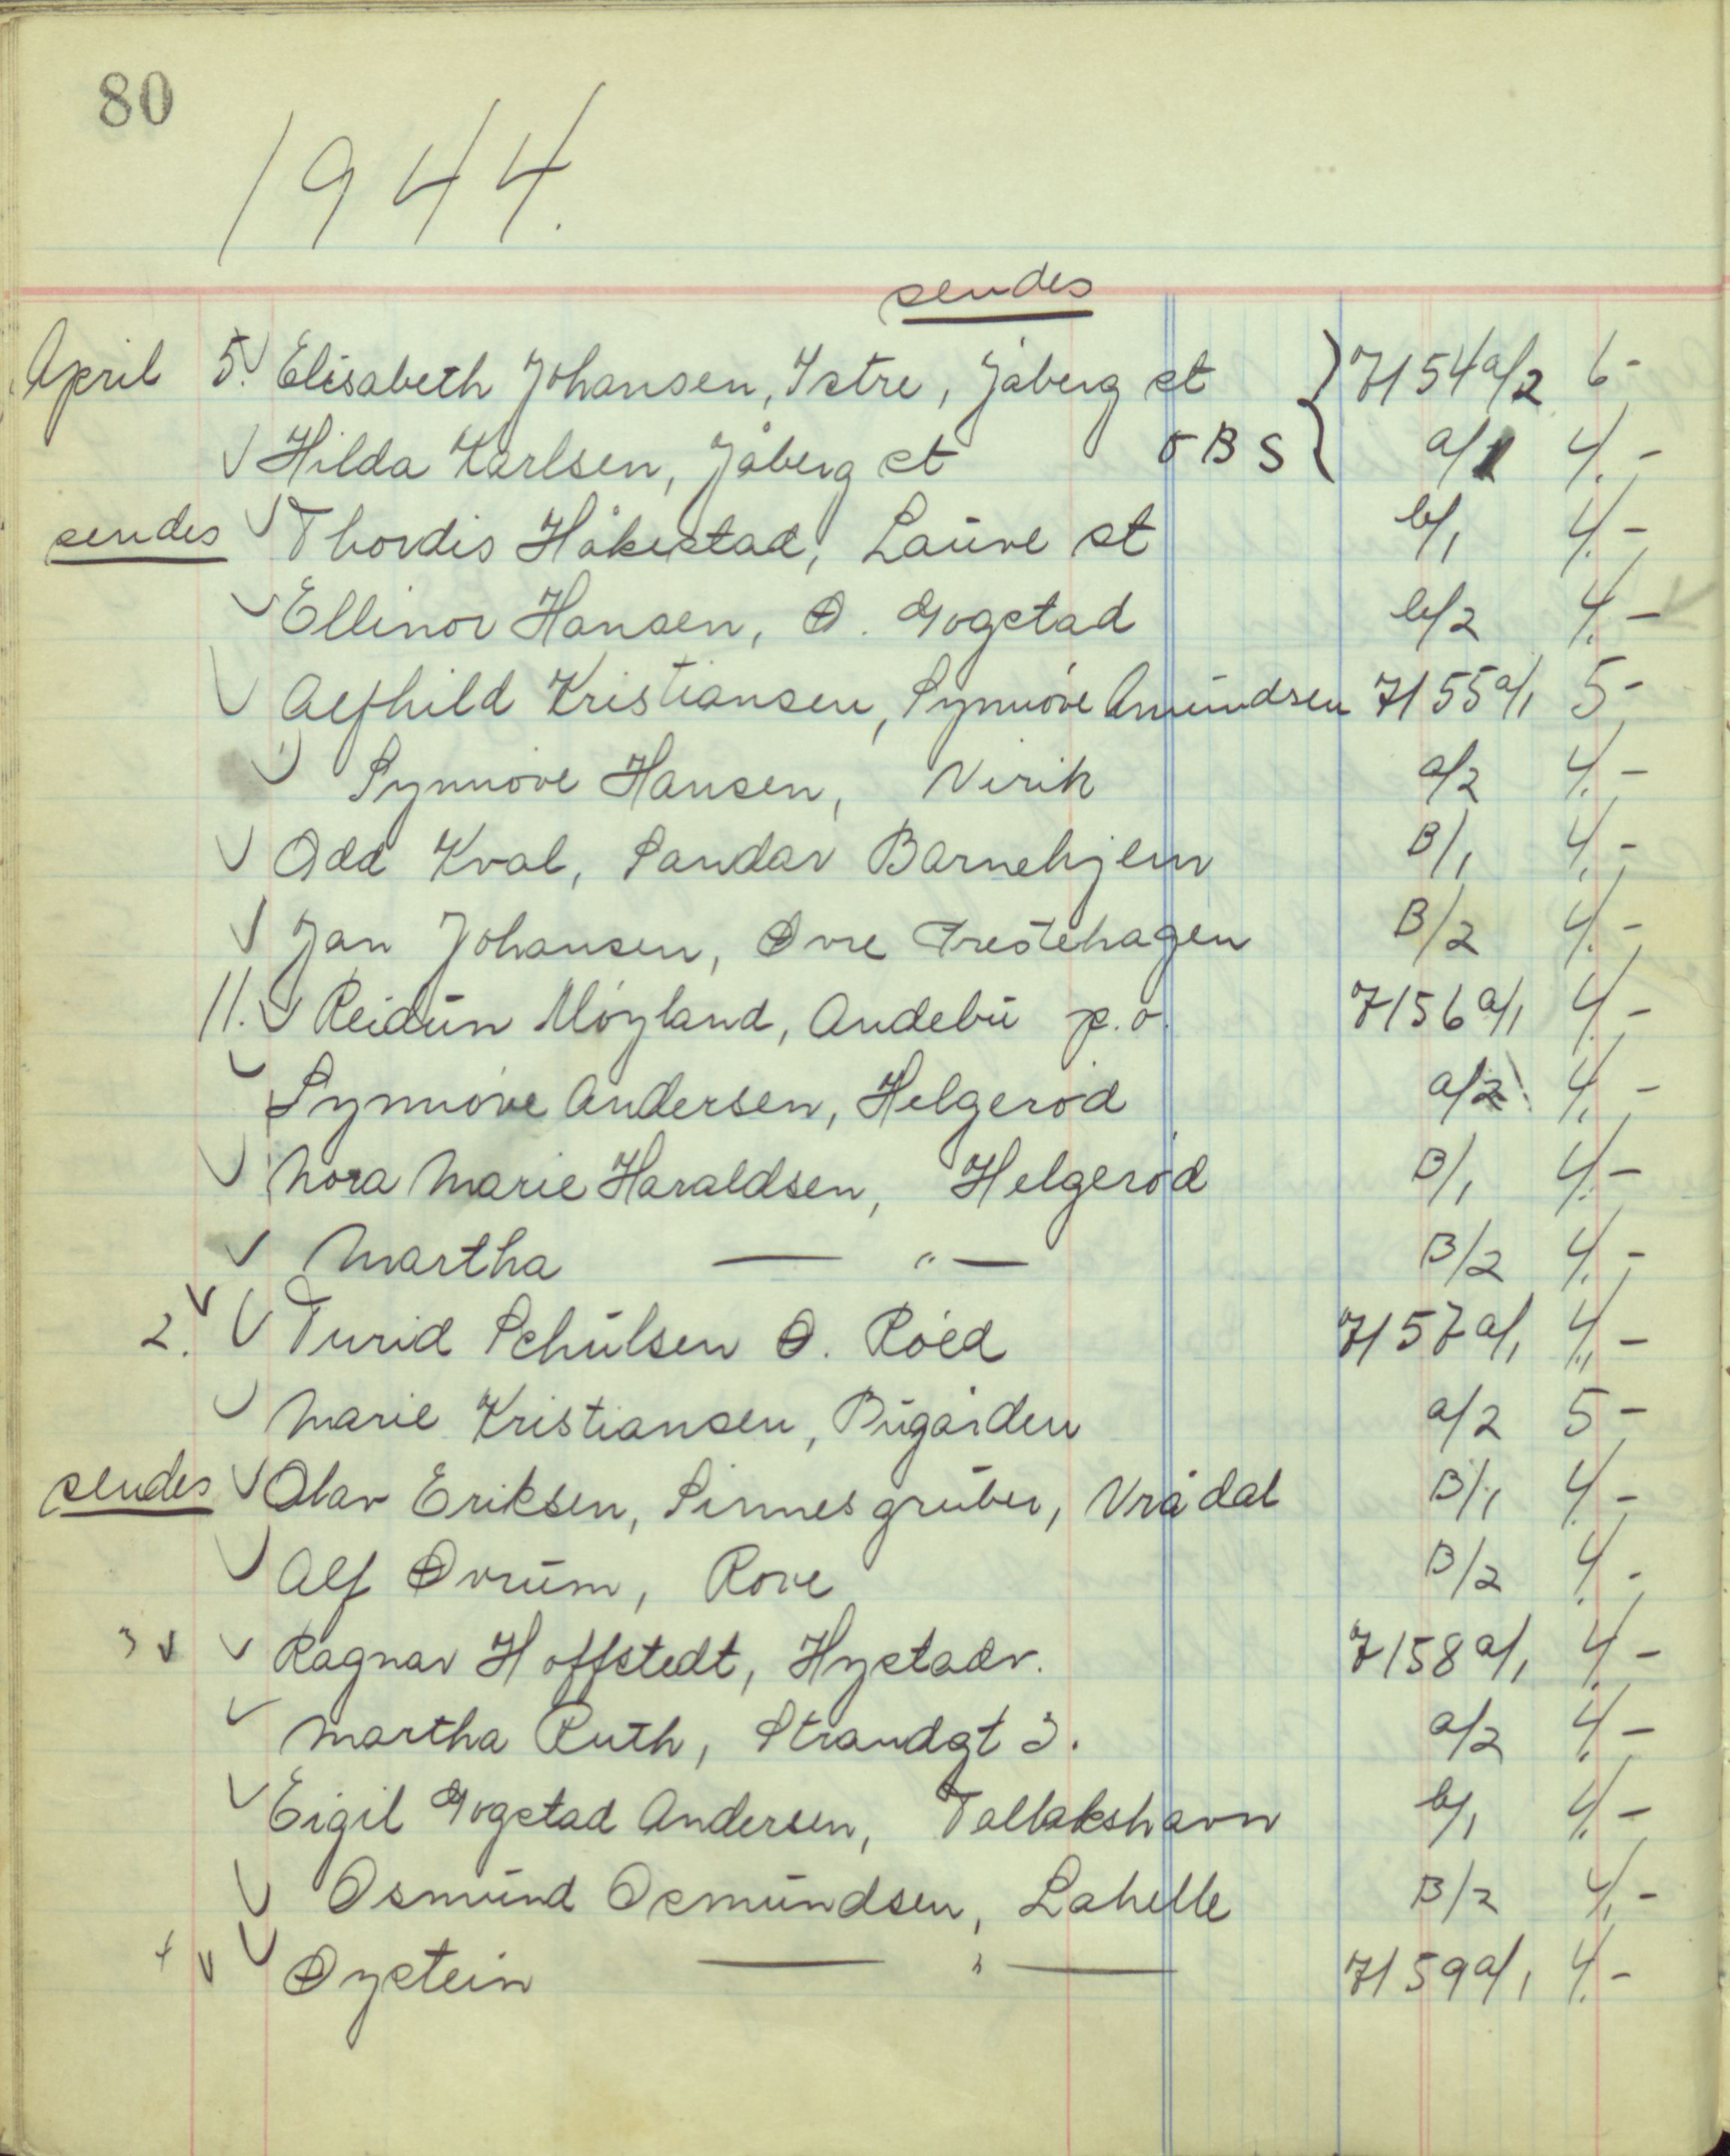 80
1944.
sendes
April 5. Elisabeth Johansen, Istre, Jåberg st } 7154 a/2 6-
Hilda Karlsen, Jåberg st OBS { a/1 4.-
sendes Thordis Håkestad, Lauve st b/1 4.-
Ellinor Hansen, Ø. Gogstad b/2 4.-
Alfhild Kristiansen, Synnøve Amundsen 7155 a/1 5-
Synnøve Hansen, Virik a/2 4.-
Odd Kval, Sandar Barnehjem B/1 4.-
Jan Johansen, Øvre Prestehagen B/2 4.-
11. Reidun Møyland, Andebu p.o. 7156 a/1 4.-
Synnøve Andersen, Helgerød a/2 4.-
Nora Marie Haraldsen, Helgerød B/1 4.-
Martha — " — B/2 4.-
2. Turid Schulsen Ø. Röed 7157 a/1 4.-
Marie Kristiansen, Bugården a/2 5-
sendes Olav Eriksen, Sinnesgruber, Vrådal B/1 4.-
Alf Øvrum, Rove B/2 4.-
3 Ragnar Hoffstedt, Hystadv. 7158 a/1 4.-
Martha Ruth, Strandgt 3. a/2 4.-
Eigil Gogstad Andersen, Tallakshavn b/1 4.-
Osmund Osmundsen, Lahelle B/2 4.-
4 Øystein — " — 7159 a/1 4.-